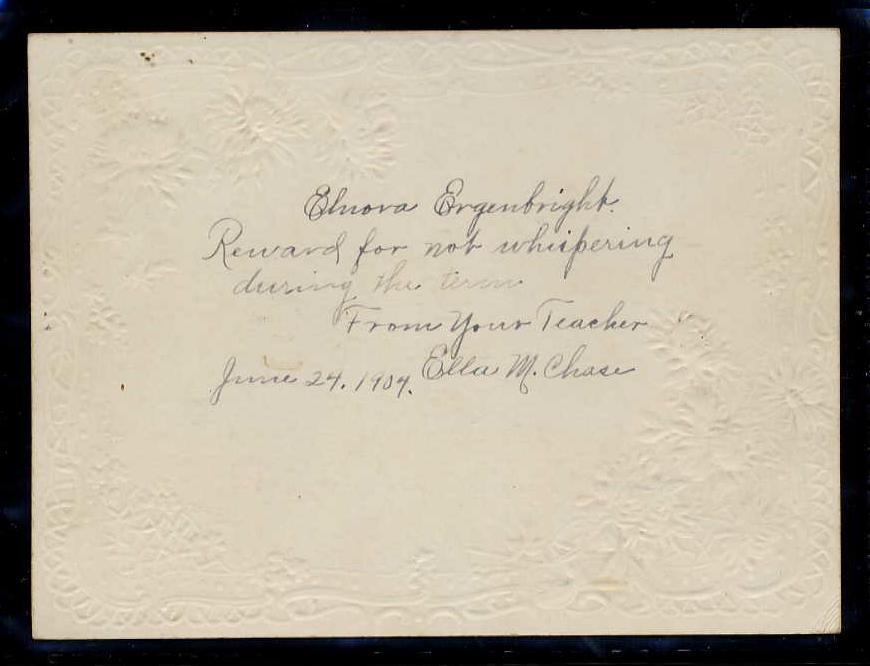 Elnora Ergenbright.
Reward for not whispering
during the term
From Your Teacher
June 24. 1904. Ella M. Chase